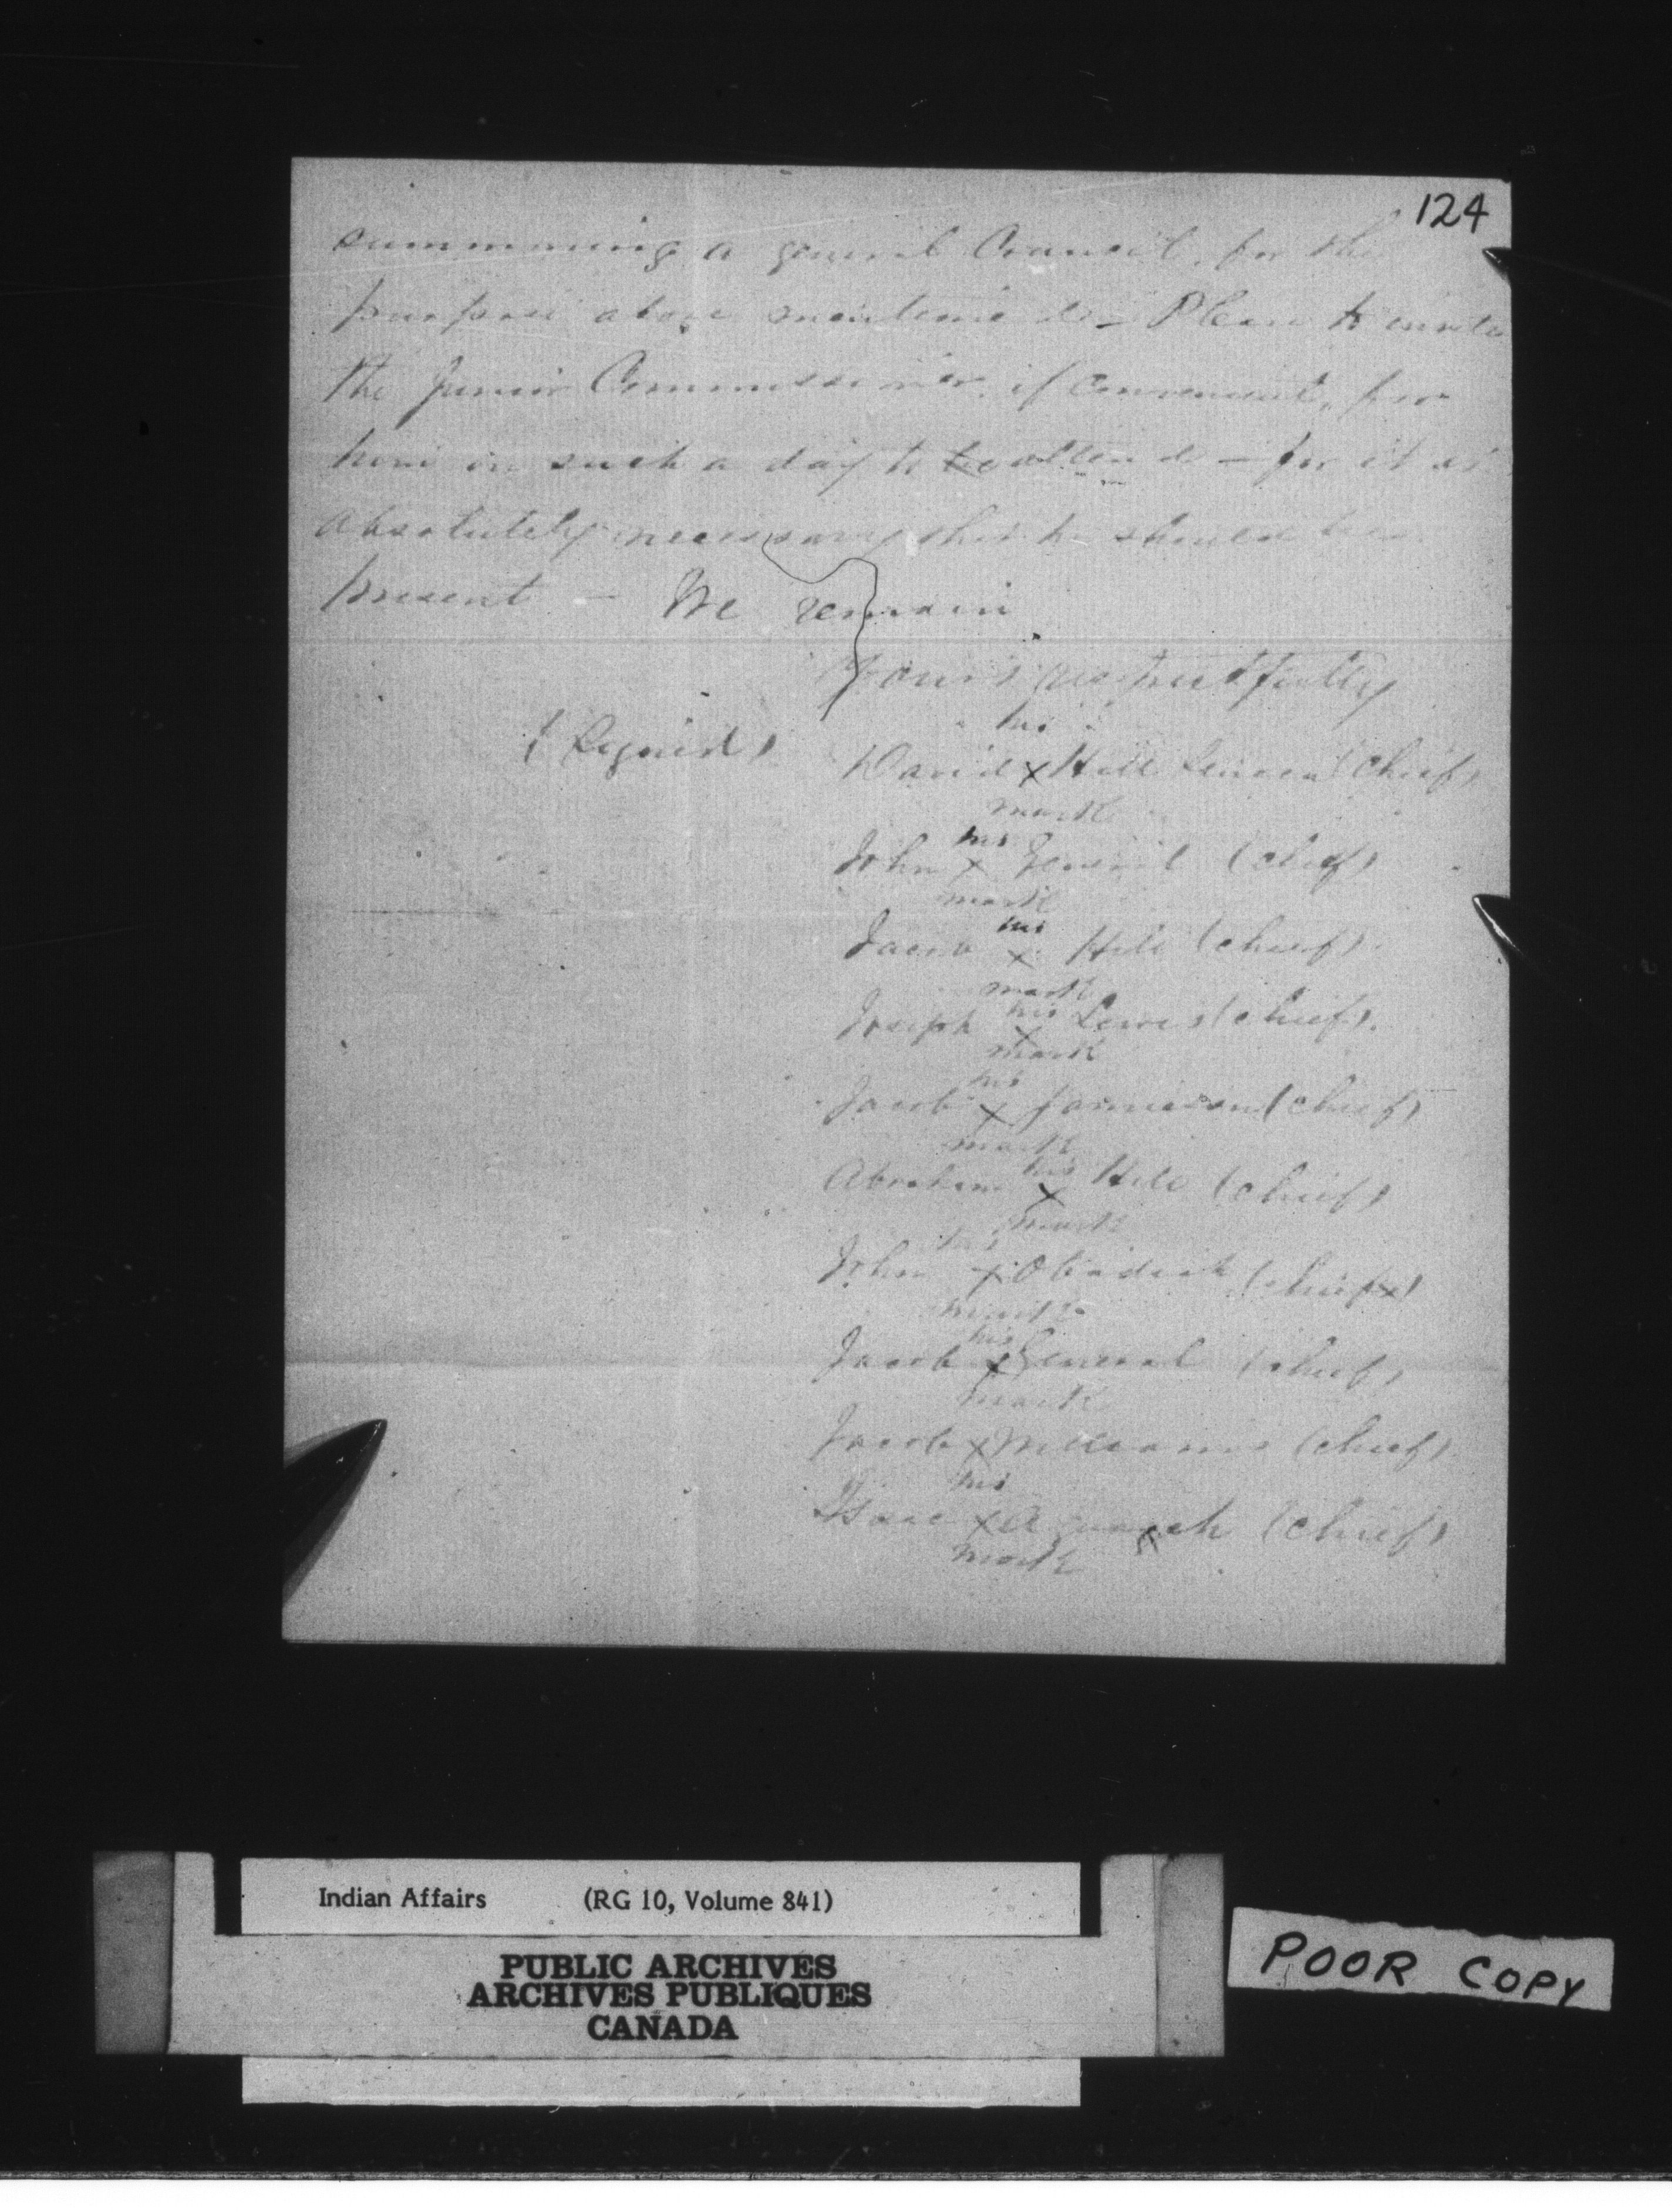 124
summoning a general Council, for the
purpose above mentioned - Please to invite
the Junior Commissioner, if convenient, for
him in such a day to be attend - for it is
absolutely necessary that he should be
present - We remain
Yours respectfully
(Signed)
his
David x Hill Seneca (Chief)
mark
his
John x General (chief)
mark
his
Jacob x Hill (chief)
mark
his
Joseph x Lewis (chief)
mark
his
Jacob x Jamieson (chief)
mark
his
Abraham x Hill (chief)
mark
his
John x Obadiah (chief)
mark
his
Jacob x General (chief)
mark
Jacob x Williams (chief)
his
Isaac x (chief)
mark
Indian Affairs (RG 10, Volume 841)
PUBLIC ARCHIVES
ARCHIVES PUBLIQUES
CANADA
POOR COPY